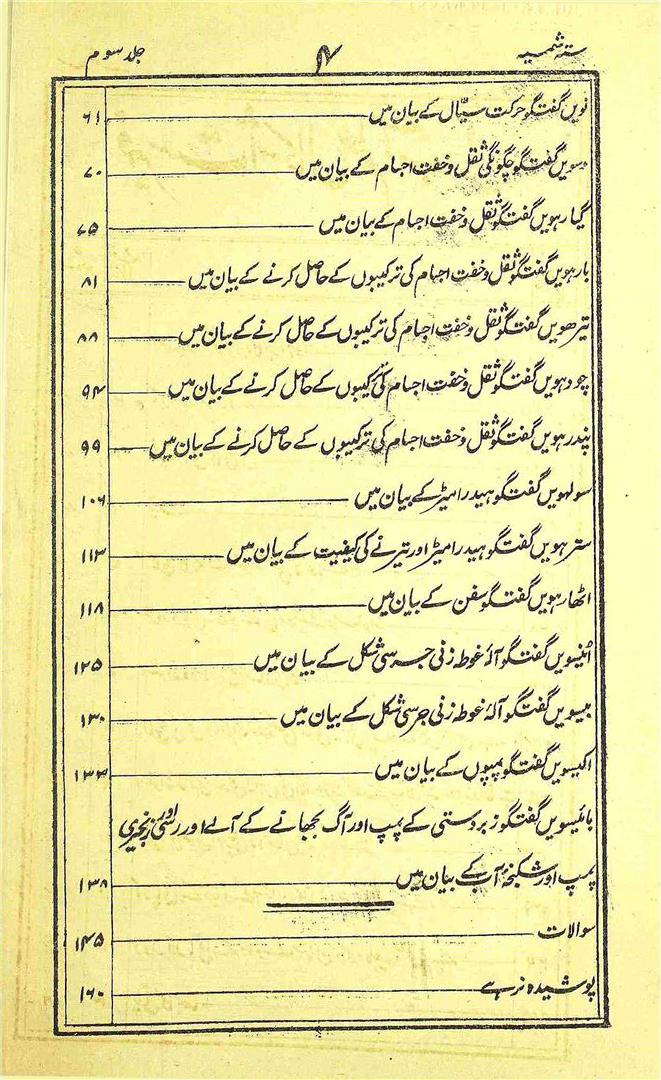 ستہ شمسیہ ۴ جلد سوم
نویں گفتگو حرکت سیّال کے بیان میں ۶۱
دسویں گفتگو چگونگی ثقل و خفت اجسام کے بیان میں ۷۰
گیارہویں گفتگو ثقل و خفت اجسام کے بیان میں ۷۵
بارہویں گفتگو ثقل و خفت اجسام کی ترکیبوں کے حاصل کرنے کے بیان میں ۸۱
تیرھویں گفتگو ثقل و خفت اجسام کی ترکیبوں کے حاصل کرنے کے بیان میں ۸۸
چودہویں گفتگو ثقل و خفت اجسام کی ترکیبوں کے حاصل کرنے کے بیان میں ۹۴
پندرہویں گفتگو ثقل و خفت اجسام کی ترکیبوں کے حاصل کرنے کے بیان میں ۹۹
سولہویں گفتگو ہیدرامیٹر کے بیان میں ۱۰۶
سترہویں گفتگو ہیدرامیٹر اور تیرنے کی کیفیت کے بیان میں ۱۱۳
اٹھارہویں گفتگو سفن کے بیان میں ۱۱۸
اُنیسویں گفتگو آلۂ غوطہ زنی جرسی شکل کے بیان میں ۱۲۵
بیسویں گفتگو آلۂ غوطہ زنی جرسی شکل کے بیان میں ۱۳۰
اکیسویں گفتگو پمپوں کے بیان میں ۱۳۴
بائیسویں گفتگو زبردستی کے پمپ اور آگ بجھانے کے آلے اور رسّی اور زنجیری
پمپ اور شکنجۂ آب کے بیان میں ۱۳۸
سوالات ۱۴۵
پوشیدہ نرہے ۱۶۰